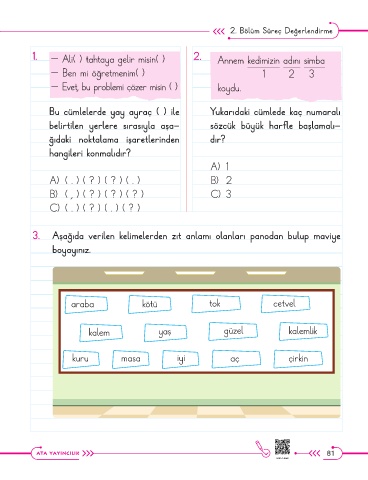 2. Bölüm Süreç Değerlendirme
1.
– Ali( ) tahtaya gelir misin( )
– Ben mi öğretmenim( )
– Evet, bu problemi çözer misin ( )
Bu cümlelerde yay ayraç ( ) ile
belirtilen yerlere sırasıyla aşa-
ğıdaki noktalama işaretlerinden
hangileri konmalıdır?
A) ( . ) ( ? ) ( ? ) ( . )
B) ( , ) ( ? ) ( ? ) ( ? )
C) ( . ) ( ? ) ( . ) ( ? )
2.
Annem kedimizin adını simba
1 2 3
koydu.
Yukarıdaki cümlede kaç numaralı
sözcük büyük harfle başlamalı-
dır?
A) 1
B) 2
C) 3
3. Aşağıda verilen kelimelerden zıt anlamı olanları panodan bulup maviye
boyayınız.
araba kötü tok cetvel
kalem yaş güzel kalemlik
kuru masa iyi aç çirkin
ATA YAYINCILIK
81